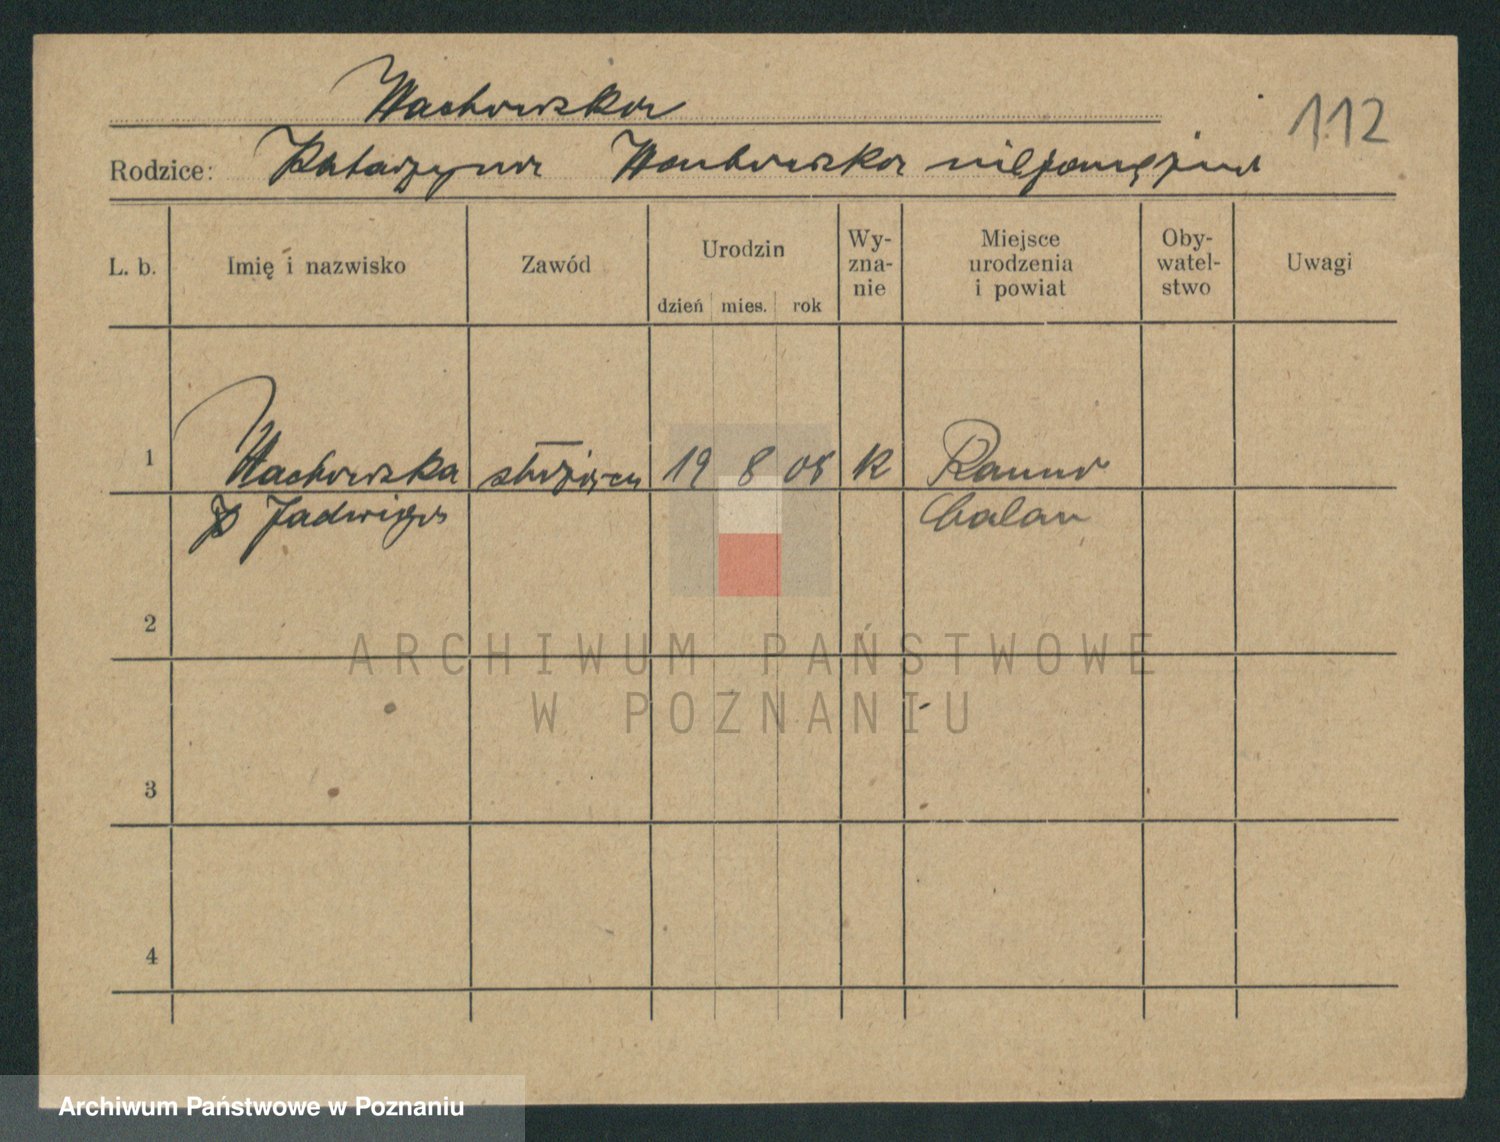 Wachowska
112
Rodzice: Katarzyna Wachowska niezamężna
L. b. Imię i nazwisko Zawód Urodzin dzień mies. rok Wy-zna-nie Miejsce urodzenia i powiat Oby-watel-stwo Uwagi
1 Wachowska służąca 19 8 08 K
Jadwiga
2
3
4
ARCHIWUM PAŃSTWOWE
W POZNANIU
Archiwum Państwowe w Poznaniu